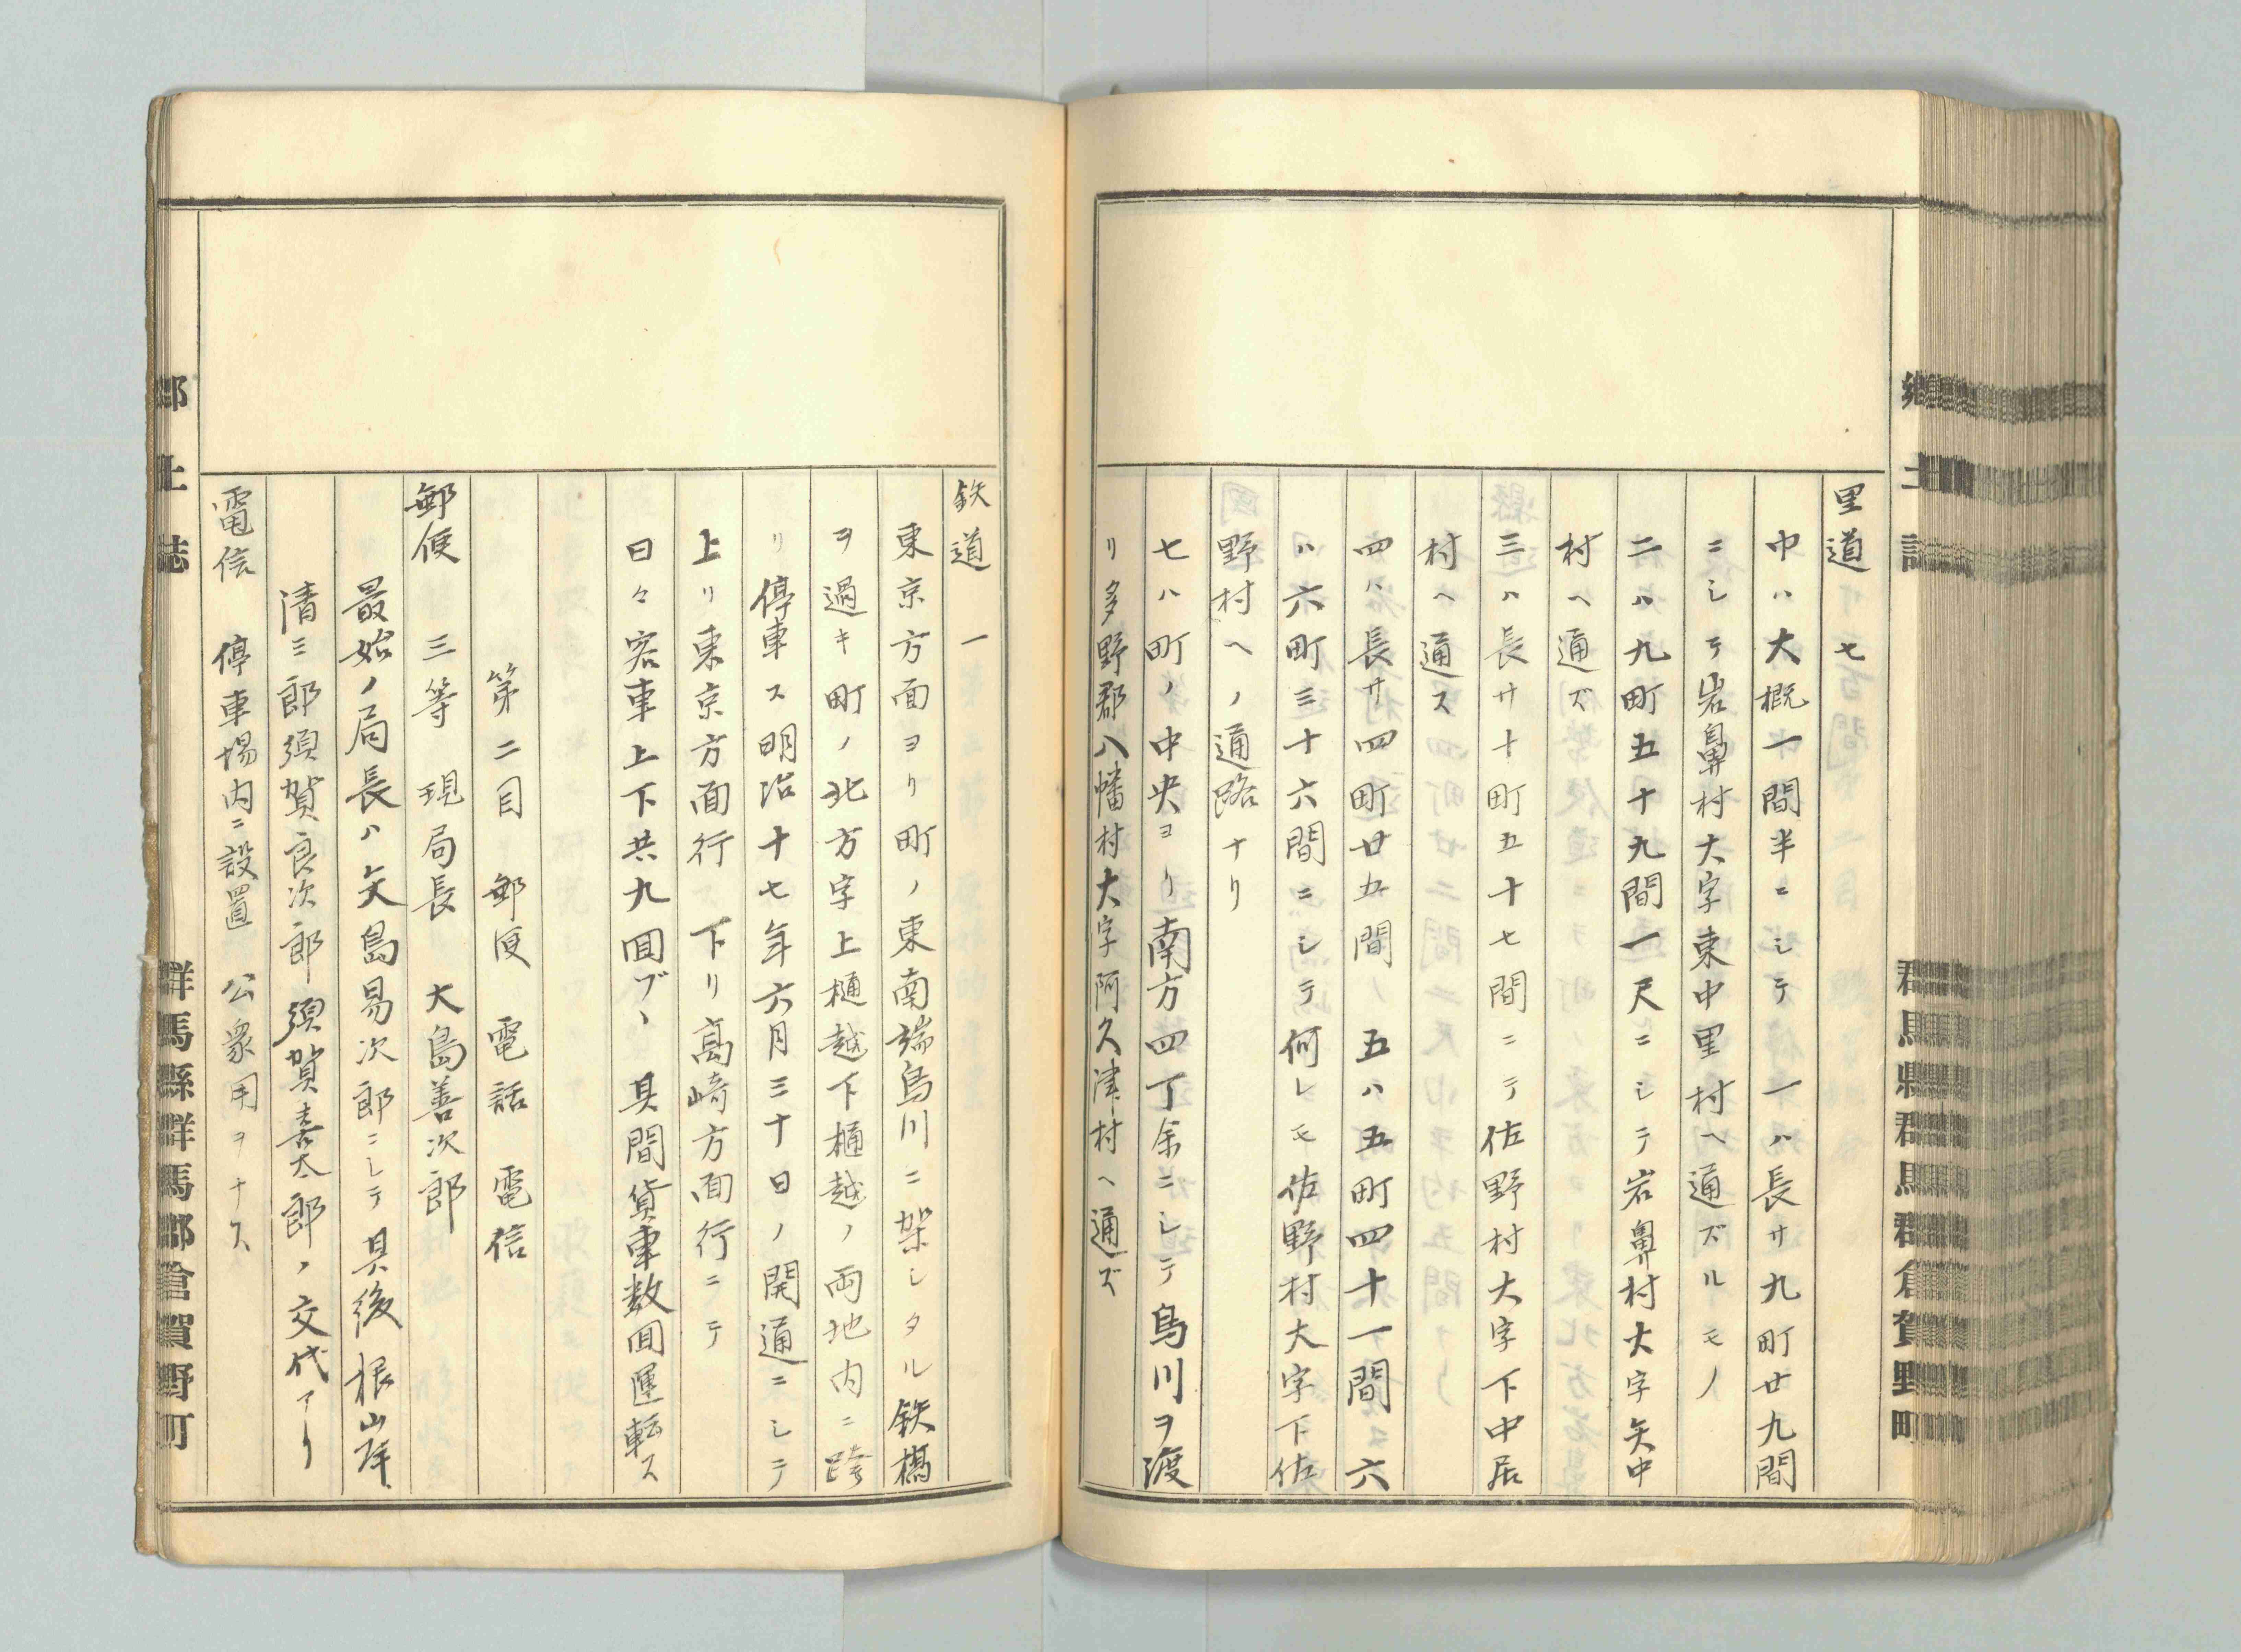 里道 七
巾ハ大概一間半ニシテ 一ハ長サ九町廿九間
ニシテ岩鼻村大字東中里村ヘ通ズルモノ
二ハ九町五十九間一尺ニシテ岩鼻村大字矢中
村ヘ通ズ
三ハ長サ十町五十七間ニテ佐野村大字下中居
村ヘ通ス
四ハ長サ四町廿五間ノ 五ハ五町四十一間 六
ハ六町三十六間ニシテ何レモ佐野村大字下佐
野村ヘノ通路ナリ
七ハ町ノ中央ヨリ南方四丁余ニシテ烏川ヲ渡
リ多野郡八幡村大字阿久津村ヘ通ズ
鉄道 一
東京方面ヨリ町ノ東南端烏川ニ架シタル鉄橋
ヲ過キ町ノ北方字上樋越下樋越ノ両地内ニ跨
リ停車ス明治十七年六月三十日ノ開通ニシテ
上リ東京方面行 下リ高崎方面行ニテ
日々客車上下共九回ヅヽ 其間貨車数回運転ス
第二目 郵便 電話 電信
郵便 三等 現局長 大島善次郎
最始ノ局長ハ文島易次郎ニシテ其後根岸
清三郎須賀良次郎須賀喜太郎ノ交代アリ
電信 停車場内ニ設置 公衆用ヲナス
郷土誌 群馬縣群馬郡倉賀野町